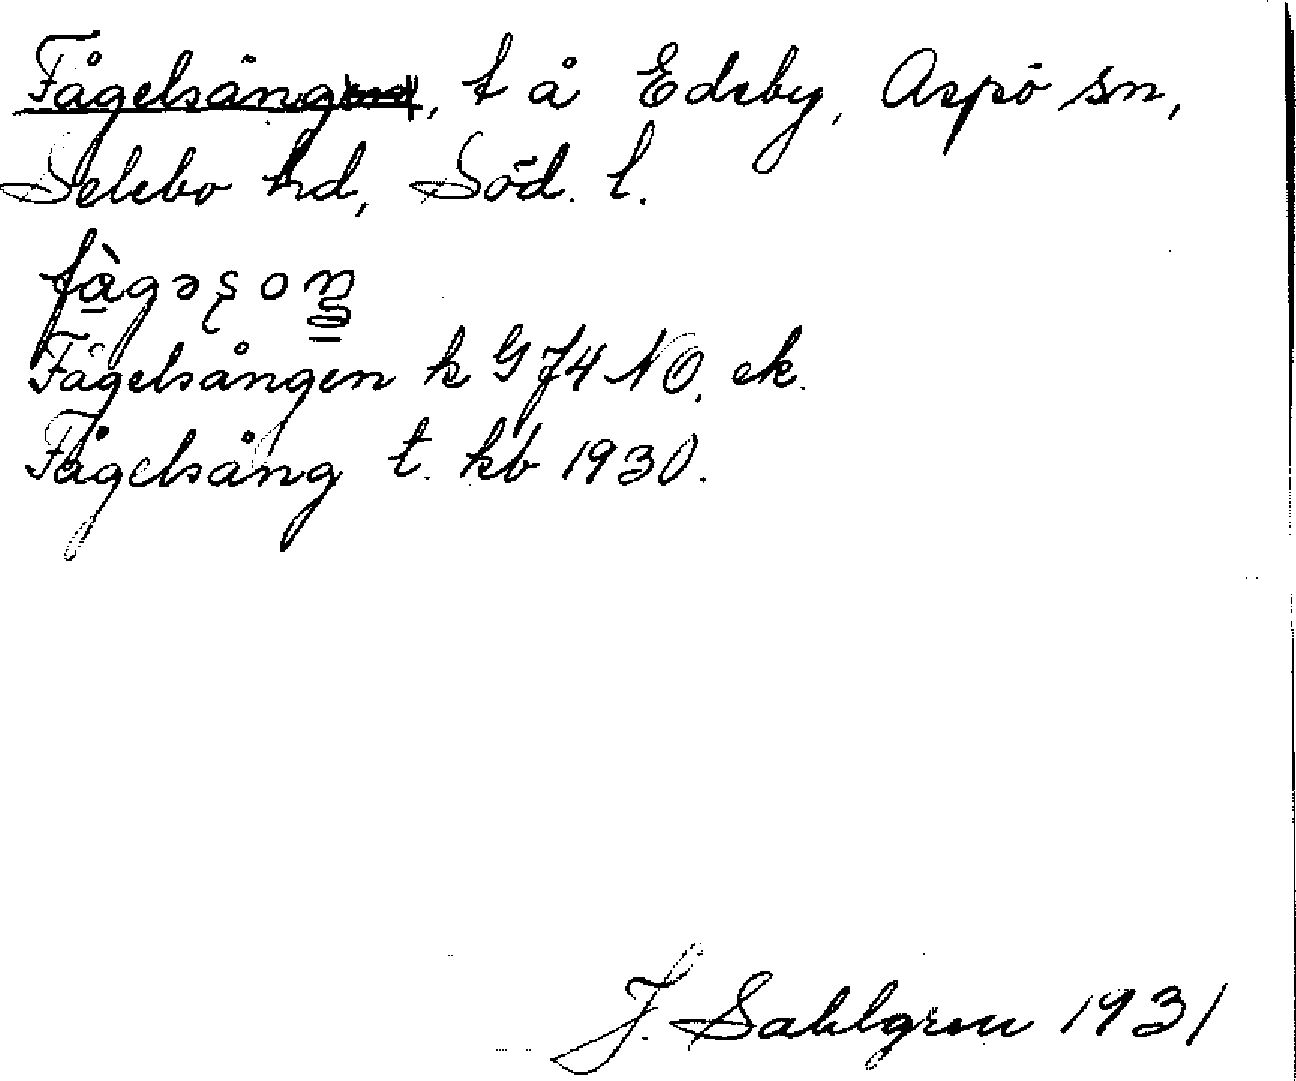 Fågelsång, t å Edeby, Aspö sn,
Selebo hd, Söd. l.
fàgəʂoŋ
Fågelsången k G 74 NO, ek.
Fågelsång t. kb 1930.
J. Sahlgren 1931